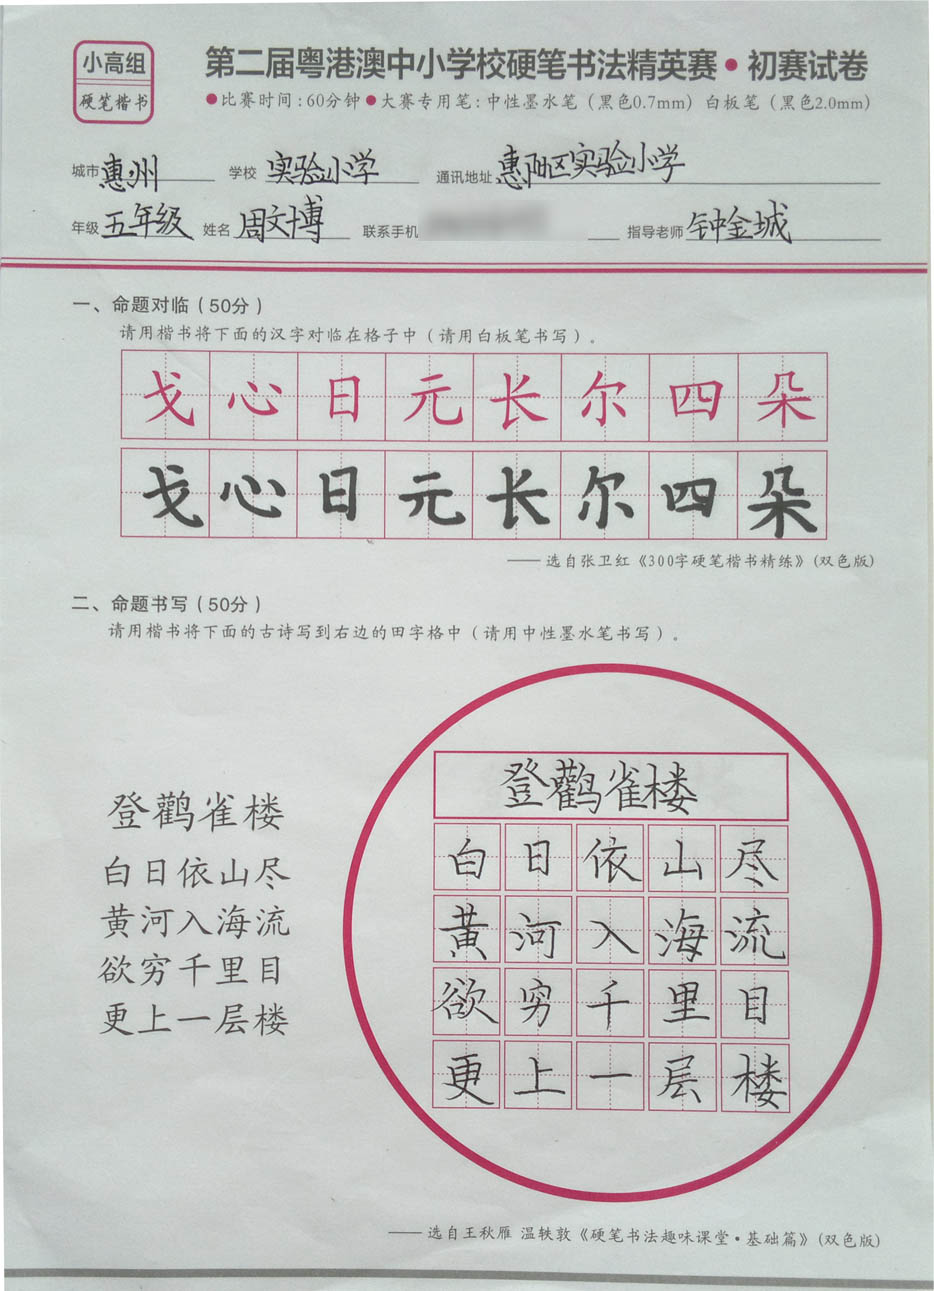 小高组
硬笔楷书
第二届粤港澳中小学校硬笔书法精英赛·初赛试卷
●比赛时间:60分钟●大赛专用笔:中性墨水笔(黑色0.7mm)白板笔(黑色2.0mm)
城市 惠州 学校 实验小学 通讯地址 惠阳区实验小学
年级 五年级 姓名 周文博 联系手机 指导老师 钟金城
一、命题对临(50分)
请用楷书将下面的汉字对临在格子中(请用白板笔书写)。
戈心日元长尔四朵
戈心日元长尔四朵
——选自张卫红《300字硬笔楷书精练》(双色版)
二、命题书写(50分)
请用楷书将下面的古诗写到右边的田字格中(请用中性墨水笔书写)。
登鹳雀楼
白日依山尽
黄河入海流
欲穷千里目
更上一层楼
登鹳雀楼
白日依山尽
黄河入海流
欲穷千里目
更上一层楼
——选自王秋雁 温轶敦《硬笔书法趣味课堂·基础篇》(双色版)